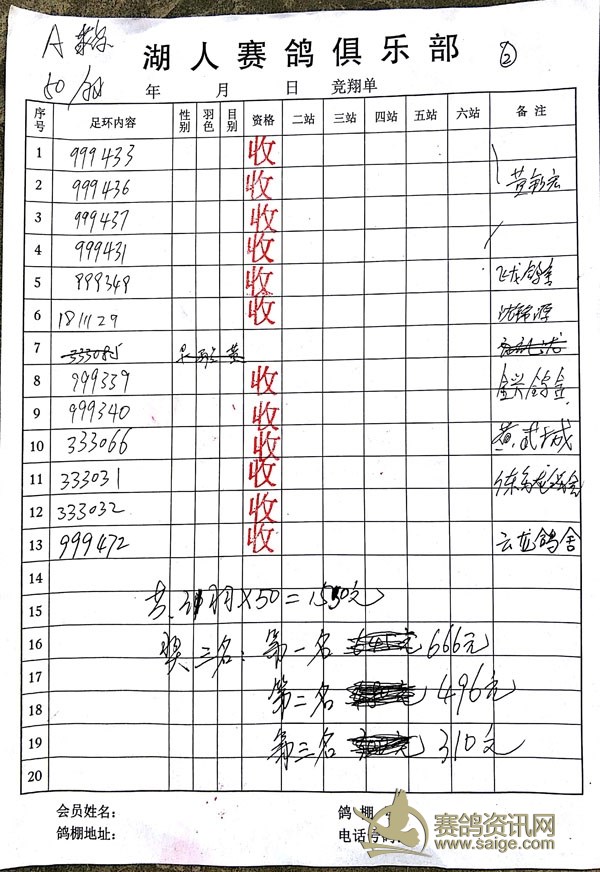 A
湖人赛鸽俱乐部 ②
50/羽 年 月 日 竞翔单
序号 足环内容 性别 羽色 目别 资格 二站 三站 四站 五站 六站 备注
1 999433 收
2 999436 收
3 999437 收
4 999431 收
5 999349 收 飞龙鸽舍
6 1811129 收
7 333085
8 999339 收
9 999340 收
10 333066 收
11 333031 收
12 333032 收
13 999472 收 云龙鸽舍
14
15 共 31羽×50=1550元
16 奖三名: 第一名 666元
17
18 第二名 496元
19 第三名 310元
20
会员姓名: 鸽棚
鸽棚地址: 电话号码:
赛鸽资讯网
www.saige.com